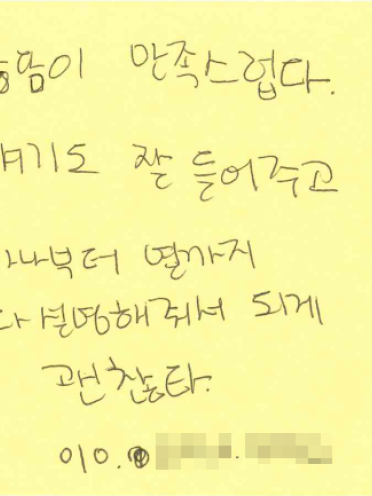 만족스럽다.
얘기도 잘 들어주고
하나부터 열까지
다 설명해줘서 되게
괜찮타.
010.